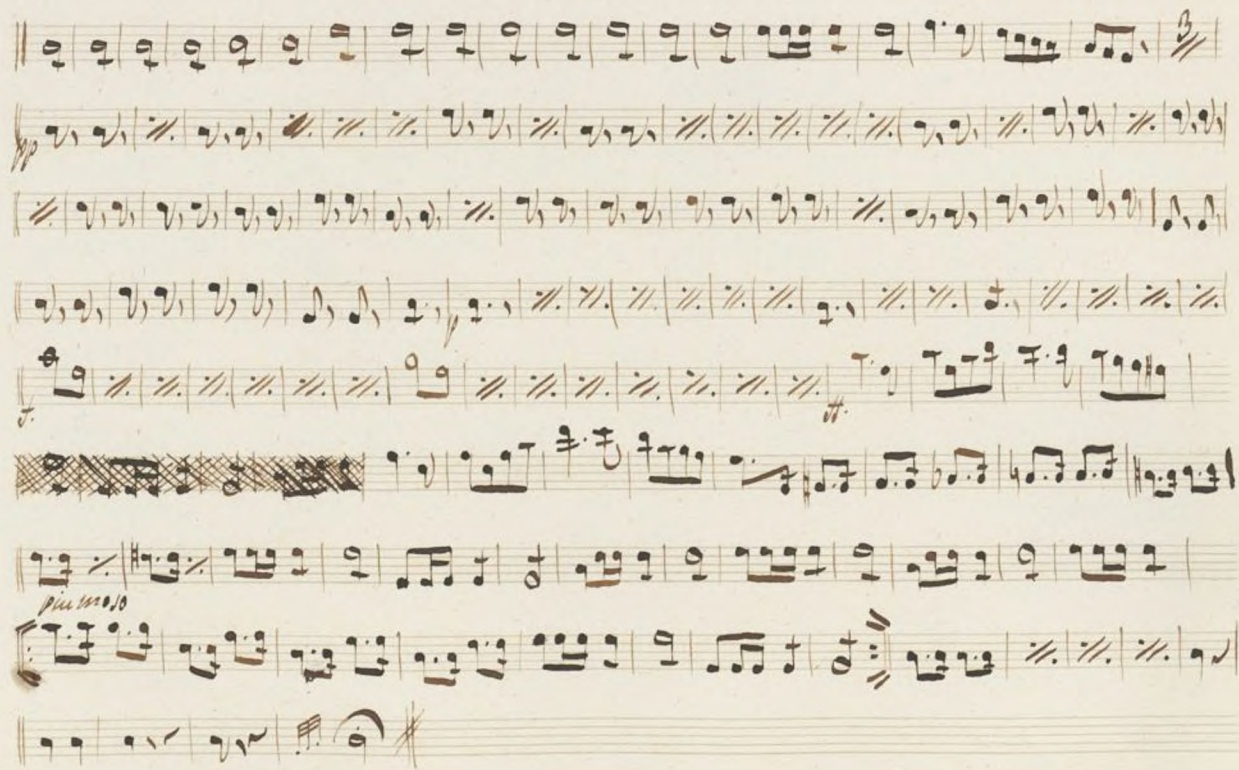 3
pp
p
f.
ff.
piu mosso